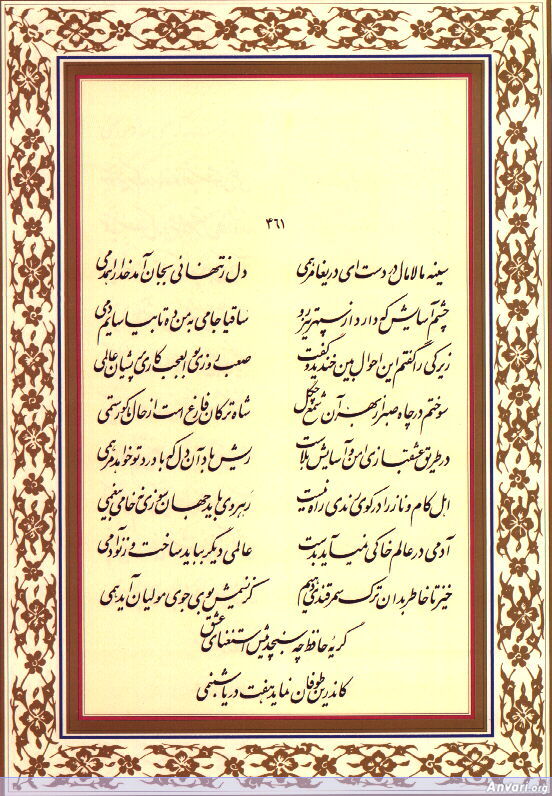 ۴۶۱
سینه مالامال درد است ای دریغا مرهمی دل ز تنهائی بجان آمد خدا را همدمی
چشم آسایش که دارد از سپهر تیزرو ساقیا جامی به من ده تا بیاسایم دمی
زیرکی را گفتم این احوال بین خندید و گفت صعب روزی بوالعجب کاری پریشان عالمی
سوختم در چاه صبر از بهر آن شمع چگل شاه ترکان فارغ است از حال ما کو رستمی
در طریق عشقبازی امن و آسایش بلاست ریش باد آن دل که با درد تو خواهد مرهمی
اهل کام و ناز را در کوی رندی راه نیست رهروی باید جهان سوزی نه خامی بیغمی
آدمی در عالم خاکی نمیآید بدست عالمی دیگر بباید ساخت وز نو آدمی
خیز تا خاطر بدان ترک سمرقندی دهیم کز نسیمش بوی جوی مولیان آید همی
گریه حافظ چه سنجد پیش استغنای عشق
کاندرین طوفان نماید هفت دریا شبنمی
Anvari.org